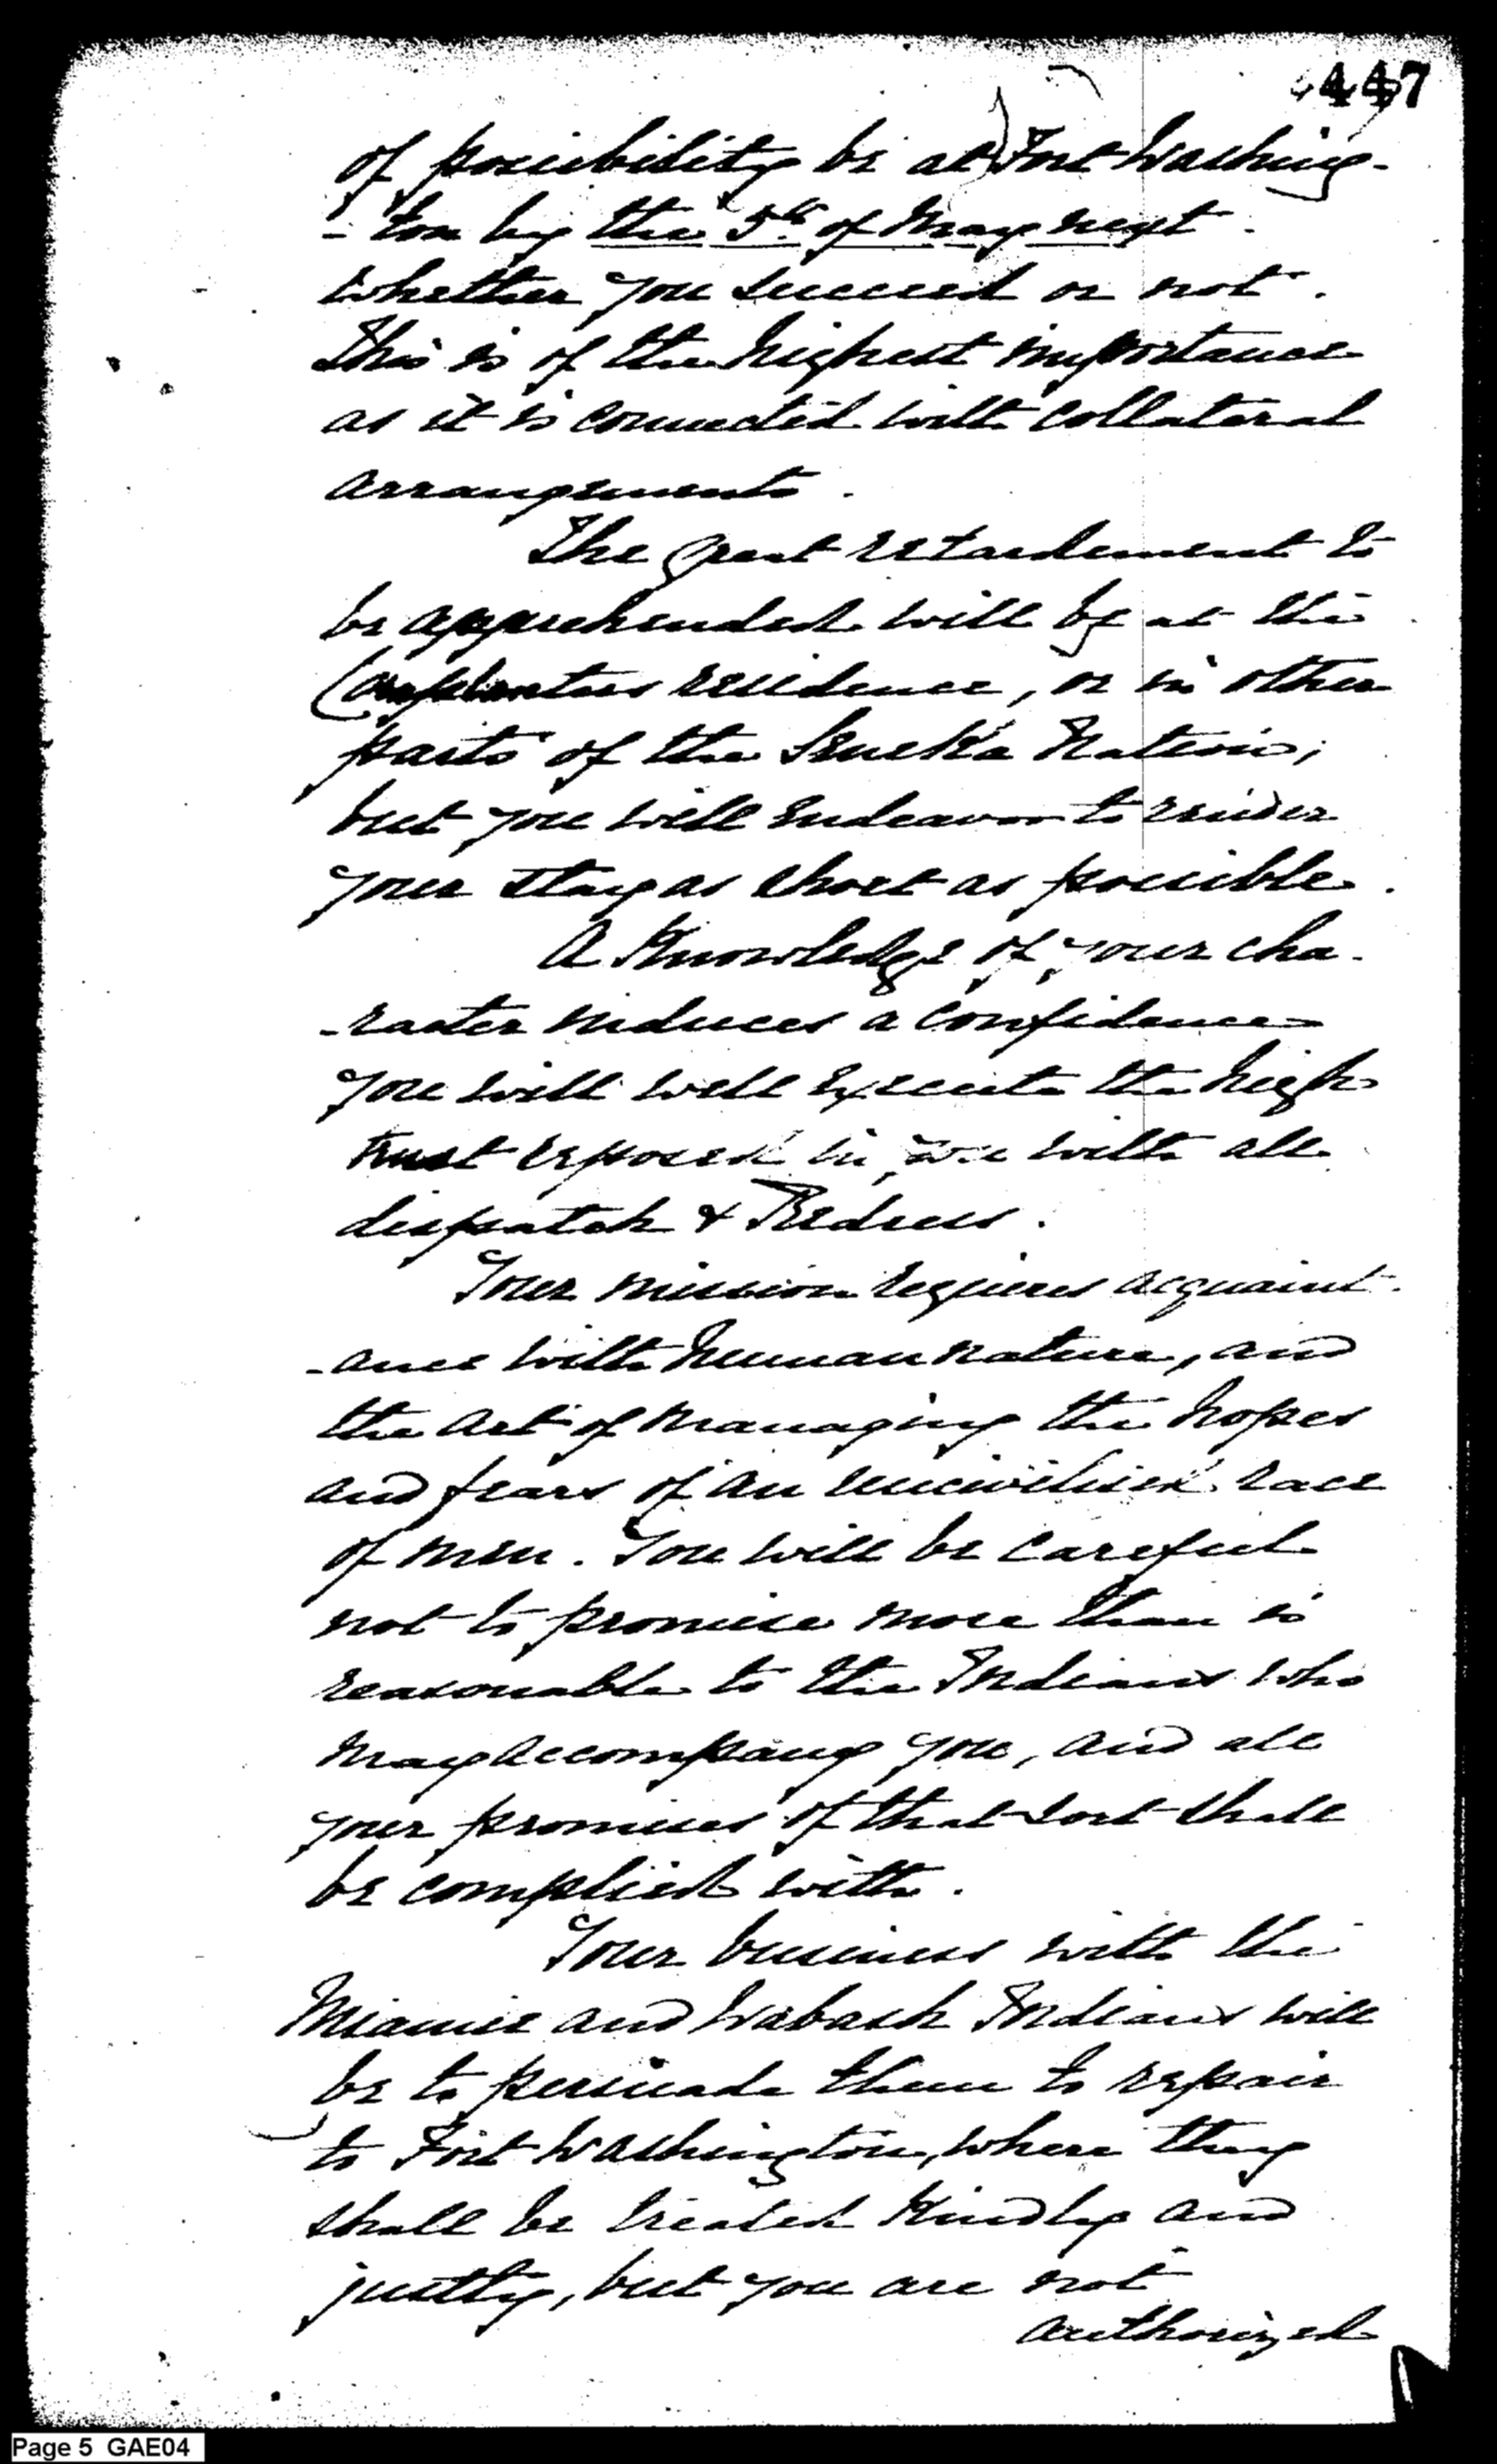 447
of possibility be at Fort Washing-
-ton by the 5th of May next.
whether you succeed or not.
This is of the highest importance
as it is connected with collateral
arrangements.
The great retardement to
be apprehended will be at the
Cornplanters residence, or in other
parts of the Seneka Nation;
but you will endeavor to render
your stay as short as possible.
A Knowledge of your cha-
-racter induces a confidence
you will well execute the high
trust reposed in you with all
dispatch &
Your mission requires acquaint-
-ance with human nature, and
the art of managing the hopes
and fears of an uncivilised race
of men. You will be careful
not to promise more than is
reasonable to the Indians who
may accompany you, and all
your promises of that sort shall
be complied with.
Your business with the
Miamie and Wabash Indians will
be to persuade them to repair
to Fort Washington, where they
shall be treated kindly and
justly, but you are not
authorized
Page 5 GAE04